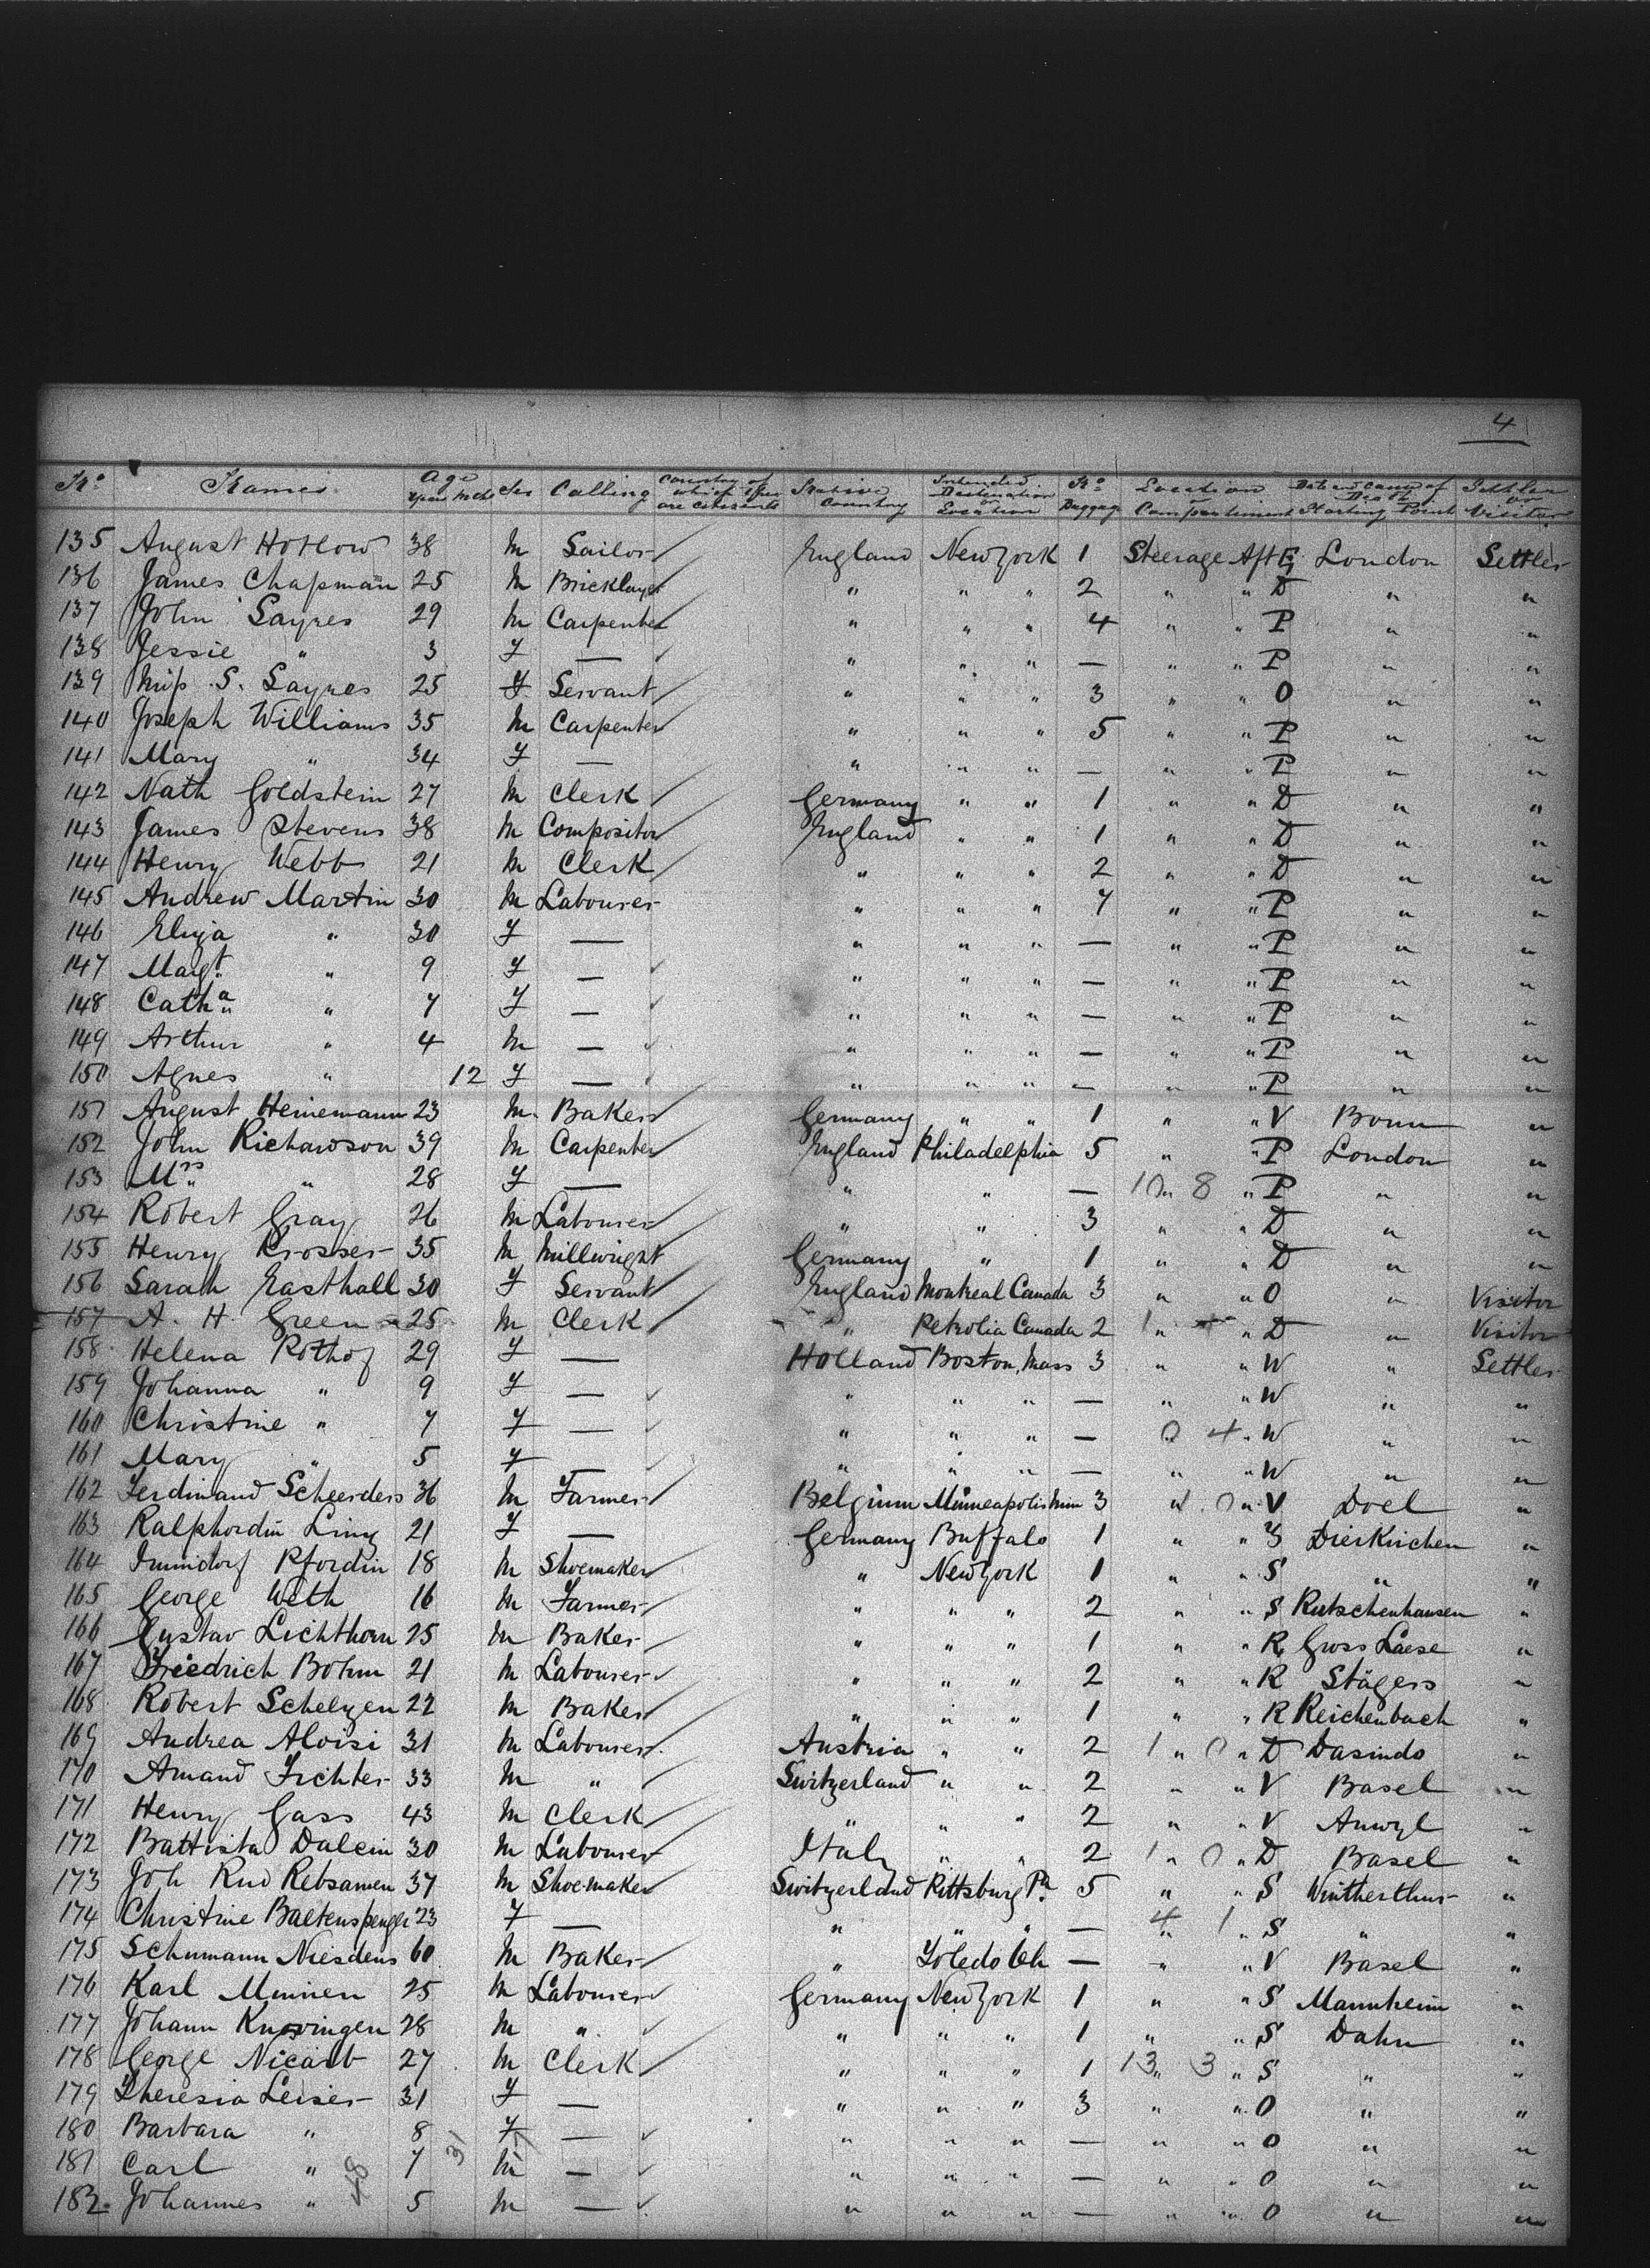 4
No Names Age Years Mths Sex Calling Country of which they are citizens Native Country Intended Destination or Location No Baggage Location Compartment Date and Cause of Death Starting Point Settler or Visitor
135 August Hotlow 38 M Sailor England New York 1 Steerage Aft G London Settler
136 James Chapman 25 M Bricklayer " " " 2 " " D " "
137 John Sayres 29 M Carpenter " " " 4 " " P " "
138 Jessie " 3 F — " " " — " " P " "
139 Miss S. Sayres 25 F Servant " " " 3 " " O " "
140 Joseph Williams 35 M Carpenter " " " 5 " " P " "
141 Mary " 34 F — " " " — " " P " "
142 Nath Goldstein 27 M Clerk Germany " " 1 " " D " "
143 James Stevens 38 M Compositor England " " 1 " " D " "
144 Henry Webb 21 M Clerk " " " 2 " " D " "
145 Andrew Martin 30 M Labourer " " " 7 " " P " "
146 Eliza " 30 F — " " " — " " P " "
147 Margt " 9 F — " " " — " " P " "
148 Catha " 7 F — " " " — " " P " "
149 Arthur " 4 M — " " " — " " P " "
150 Agnes " 12 F — " " " — " " P " "
151 August Heinemann 23 M Baker Germany " " 1 " " V Bonn "
152 John Richardson 39 M Carpenter England Philadelphia 5 " " P London "
153 Mrs " 28 F — " " — 10 " 8 " P " "
154 Robert Gray 26 M Labourer " " 3 " " D " "
155 Henry Krosser 35 M Millwright Germany " 1 " " D " "
156 Sarah Easthall 30 F Servant England Montreal Canada 3 " " O " Visitor
157 A. H. Green 25 M Clerk " Petrolia Canada 2 1 " " D " Visitor
158 Helena Rothof 29 F — Holland Boston, Mass 3 " " W " Settler
159 Johanna " 9 F — " " " — " " W " "
160 Christine " 7 F — " " " — 0 4 " W " "
161 Mary " 5 F — " " " — " " W " "
162 Ferdinand Scheerders 36 M Farmer Belgium Minneapolis Minn 3 " 0 " V Doel "
163 Ralphordin Liny 21 F — Germany Buffalo 1 " " Y Dierkirchen "
164 Pfordin 18 M Shoemaker " New York 1 " " S " "
165 George Weth 16 M Farmer " " " 2 " " S Rutschenhausen "
166 Gustav Lichthorn 25 M Baker " " " 1 " " R Gross Laese "
167 Friedrich Bohm 21 M Labourer " " " 2 " " R Stägers "
168 Robert Schelzen 22 M Baker " " " 1 " " R Reichenbach "
169 Andrea Aloisi 31 M Labourer Austria " " 2 1 " 0 " D Dasindo "
170 Amand Frichter 33 M " Switzerland " " 2 " " V Basel "
171 Henry Gass 43 M Clerk " " " 2 " " V Anwyl "
172 Battista Dalcin 30 M Labourer Italy " " 2 1 " 0 " D Basel "
173 Joh Rud Rebsamen 37 M Shoemaker Switzerland Pittsburg Pa 5 " " S Wintherthur "
174 Christine Baltenspengler 23 F — " " " — 4 " 1 " S " "
175 Schumann Niesdens 60 M Baker " Toledo Oh — " " V Basel "
176 Karl Minnen 25 M Labourer Germany New York 1 " " S Mannheim "
177 Johann Knovingen 28 M " " " " 1 " " S Dahn "
178 George Nicarb 27 M Clerk " " " 1 13 " 3 " S " "
179 Theresia Leiser 31 F — " " " 3 " " O " "
180 Barbara " 8 F — " " " — " " O " "
181 Carl " 7 31 M — " " " — " " O " "
182 Johannes " 48 5 M — " " " — " " O " "